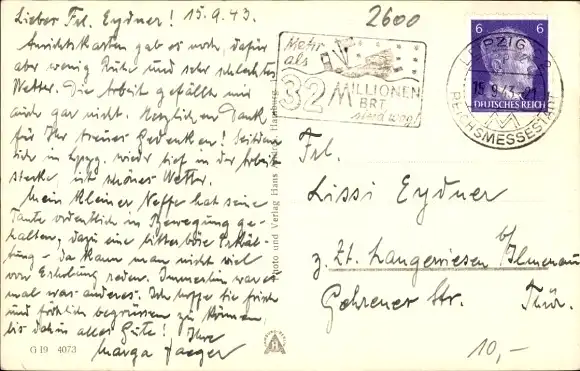 Liebes Frl. Eydner! 15.9.43.
Ansichtskarten gab es noch, dafür
aber wenig Ruhe und sehr schlechtes
Wetter. Die Arbeit gefällt mir
auch gar nicht. Herzlichen Dank
für Ihr treues Gedenken! Seitdem
ich in Lpzg. wieder tief in der Arbeit
stecke, ist schönes Wetter.
Mein kleiner Neffe hat seine
Tante ordentlich in Bewegung ge-
halten, dazu eine bitterböse Erkäl-
tung - da kann man nicht viel
von Erholung reden. Immerhin war es
mal was anderes. Ich hoffe Sie frisch
und fröhlich begrüssen zu können,
bis dahin alles Gute! Ihre
Marga Jaeger
G 19 4073
Photo und Verlag Hans Hamburg
2600
Mehr
als
32 MILLIONEN
BRT
sind weg!
6 6
DEUTSCHES REICH
LEIPZIG
15.9.43
REICHSMESSESTADT
Frl.
Lissi Eydner
z. Zt. Langewiesen b/Ilmenau
Gehrener Str. Thür.
10,-